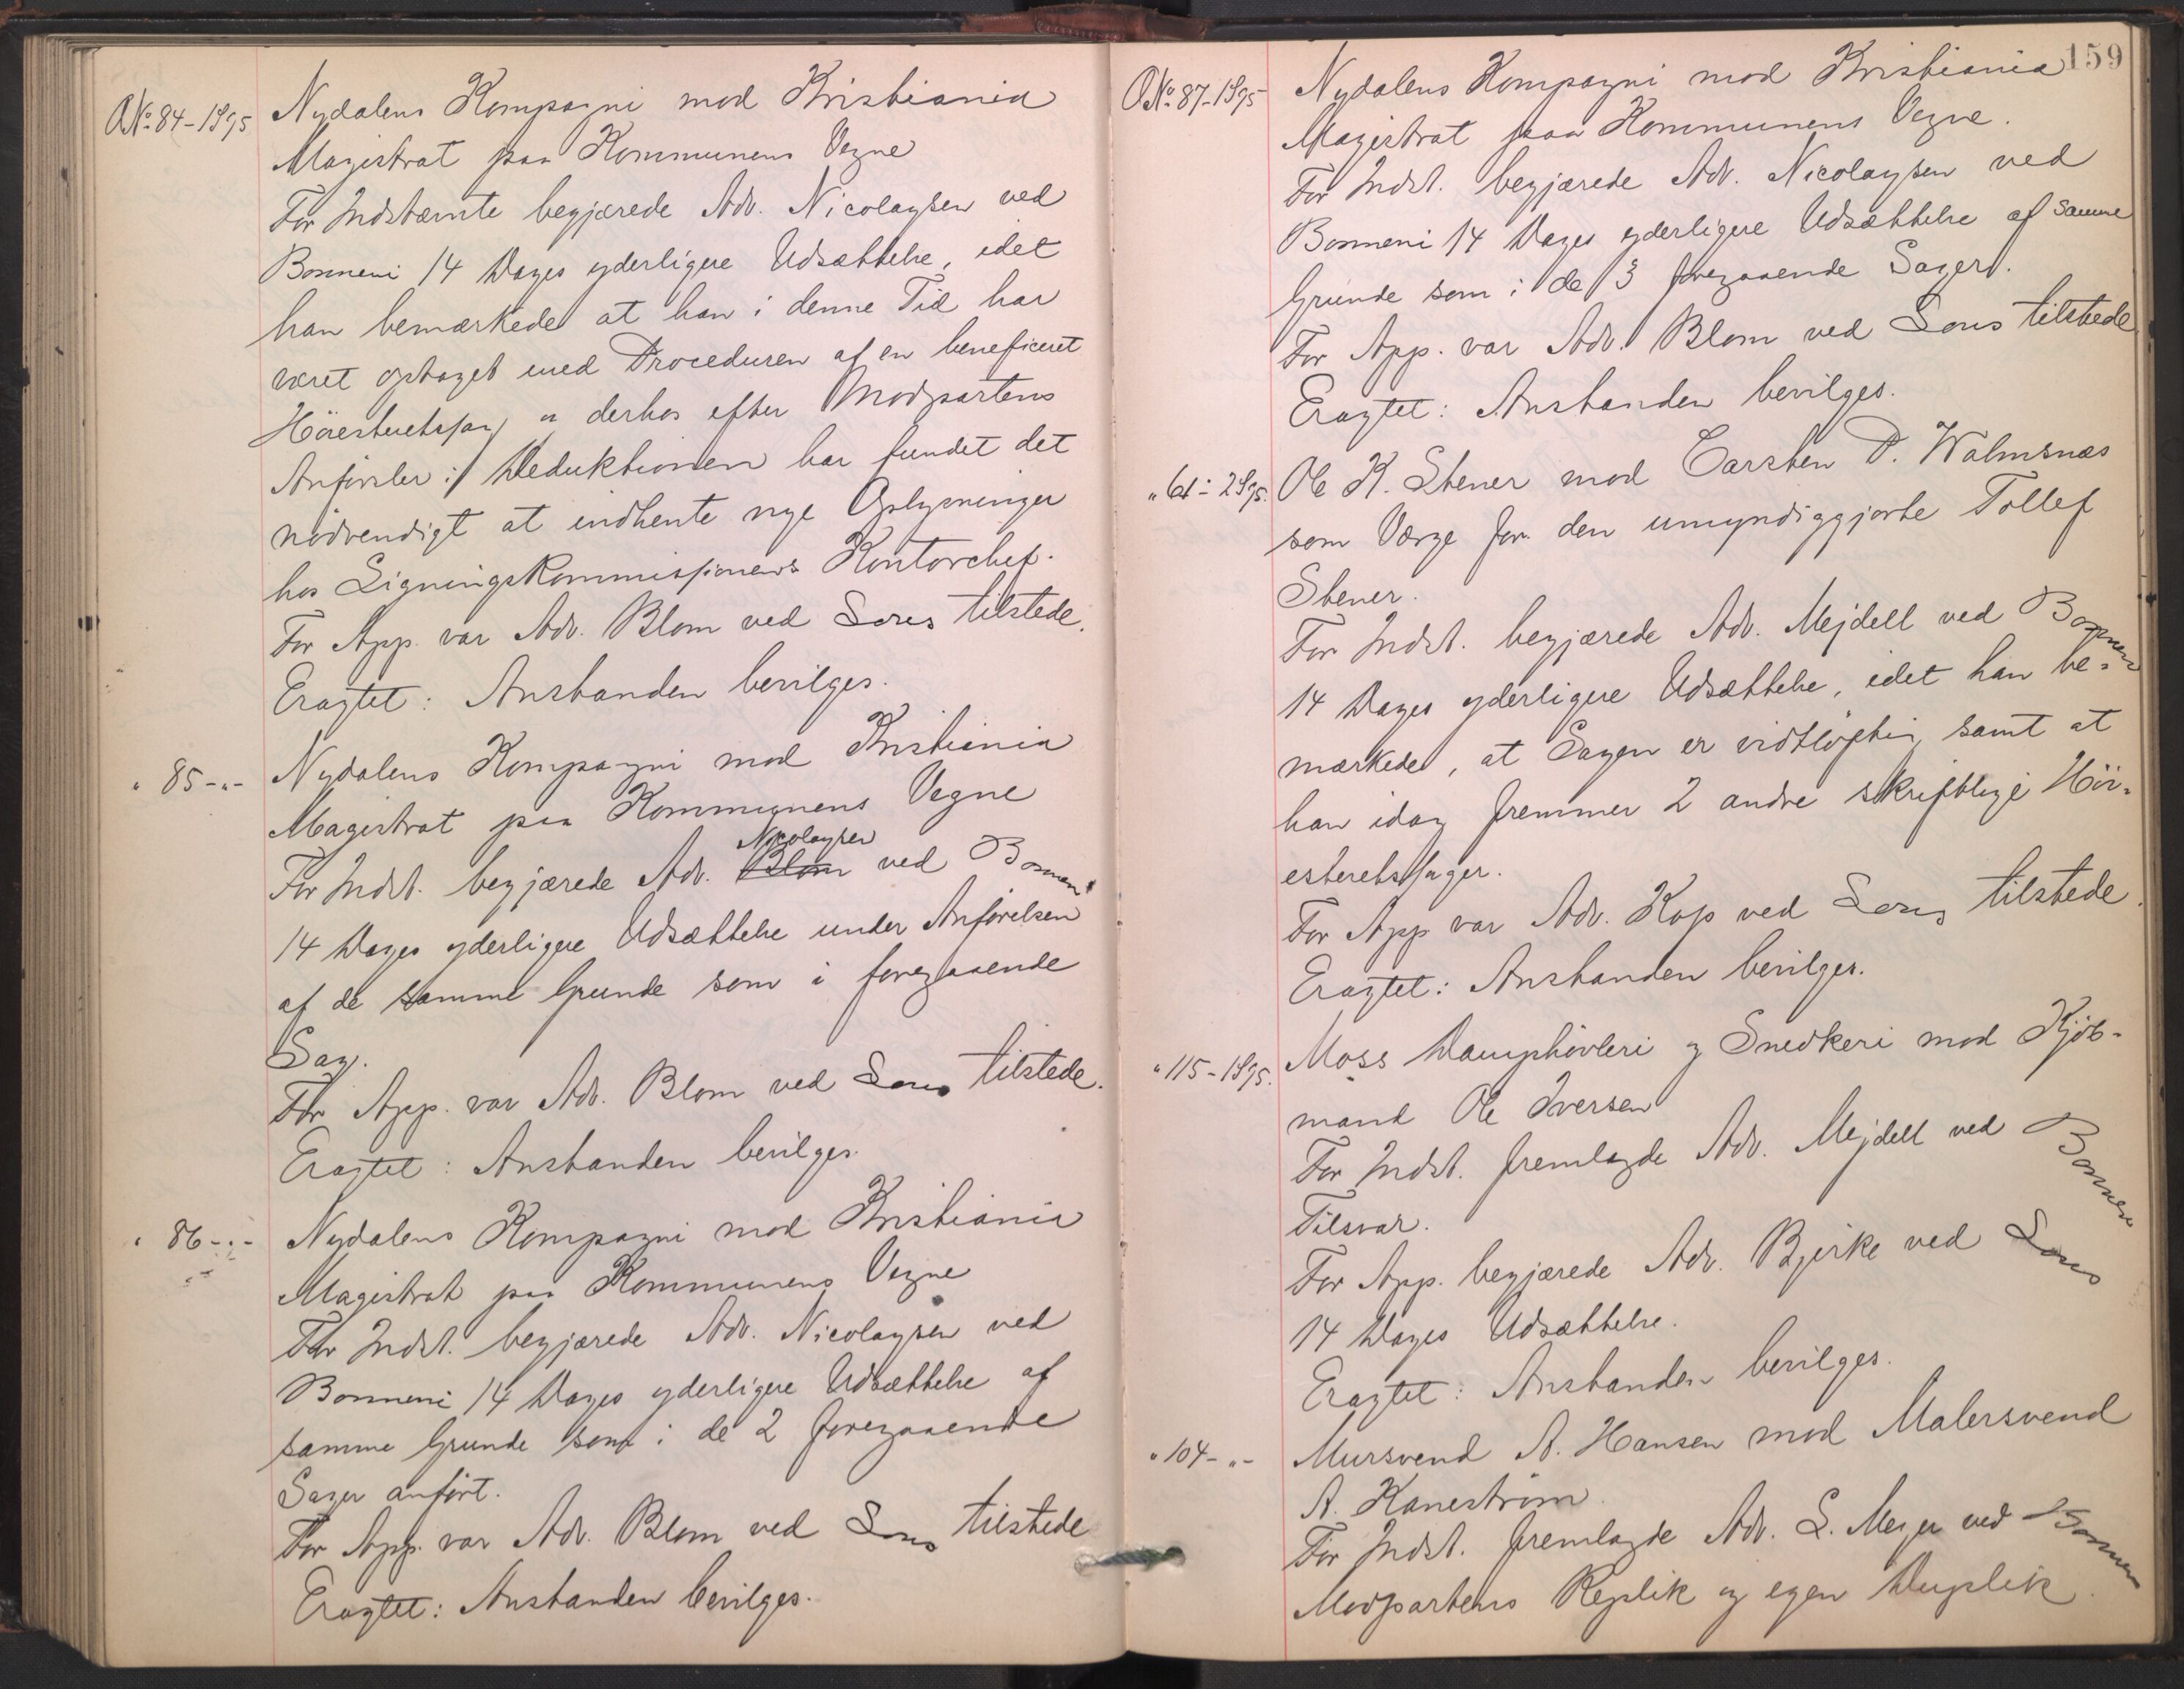 ONo. 84-1895 Nydalens Kompagni mod Kristiania
Magistrat paa Kommunens Vegne
For Indstævnte begjærede Adv. Nicolaysen ved
Bonnevi 14 Dages yderligere Udsættelse, idet
han bemærkede at han i denne Tid har
været optaget med Proceduren af en beneficeret
Höiesteretssag og derhos efter Modpartens
Anförsler i Deduktionen har fundet det
nödvendigt at indhente nye Oplysninger
hos Ligningskommissionens Kontorchef.
For App. var Adv. Blom ved Sorus tilstede.
Eragtet: Anstanden bevilges.
" 85-"- Nydalens Kompagni mod Kristiania
Magistrat paa Kommunens Vegne
Nicolaysen
For Indst. begjærede Adv. Blom ved Bonnevi
14 Dages yderligere Udsættelse under Anförelsen
af de samme Grunde som i foregaaende
Sag.
For App. var Adv. Blom ved Sorus tilstede.
Eragtet: Anstanden bevilges.
" 86-"- Nydalens Kompagni mod Kristiania
Magistrat paa Kommunens Vegne
For Indst. begjærede Adv. Nicolaysen ved
Bonnevi 14 Dages yderligere Udsættelse af
samme Grunde som i de 2 foregaaende
Sager anfört.
For App. var Adv. Blom ved Sorus tilstede
Eragtet: Anstanden bevilges.
159
ONo. 87-1895 Nydalens Kompagni mod Kristiania
Magistrat paa Kommunens Vegne.
For Indst. begjærede Adv. Nicolaysen ved
Bonnevi 14 Dages yderligere Udsættelse af samme
Grunde som i de 3 foregaaende Sager.
For App. var Adv. Blom ved Sorus tilstede
Eragtet: Anstanden bevilges.
" 61-2895. Ole K. Stener mod Carsten D. Walmsnæs
som Værge for den umyndiggjorte Tollef
Stener.
For Indst. begjærede Adv. Mejdell ved Bonnevi
14 Dages yderligere Udsættelse, idet han be-
mærkede, at Sagen er vidtlöftig samt at
han idag fremmer 2 andre skriftlige Höi-
esteretssager.
For App var Adv. Kop ved Sorus tilstede.
Eragtet: Anstanden bevilges.
" 115-1895. Moss Damphövleri og Snedkeri mod Kjöb-
mand Ole Iversen
For Indst. fremlagde Adv. Mejdell ved Bonnevi
Tilsvar.
For App. begjærede Adv. Bjerke ved Sorus
14 Dages Udsættelse.
Eragtet: Anstanden bevilges.
" 104-"- Mursvend A. Hansen mod Malersvend
A. Kaneström.
For Indst. fremlagde Adv. L. Meyer ved Bonnevi
Modpartens Replik og egen Duplik.